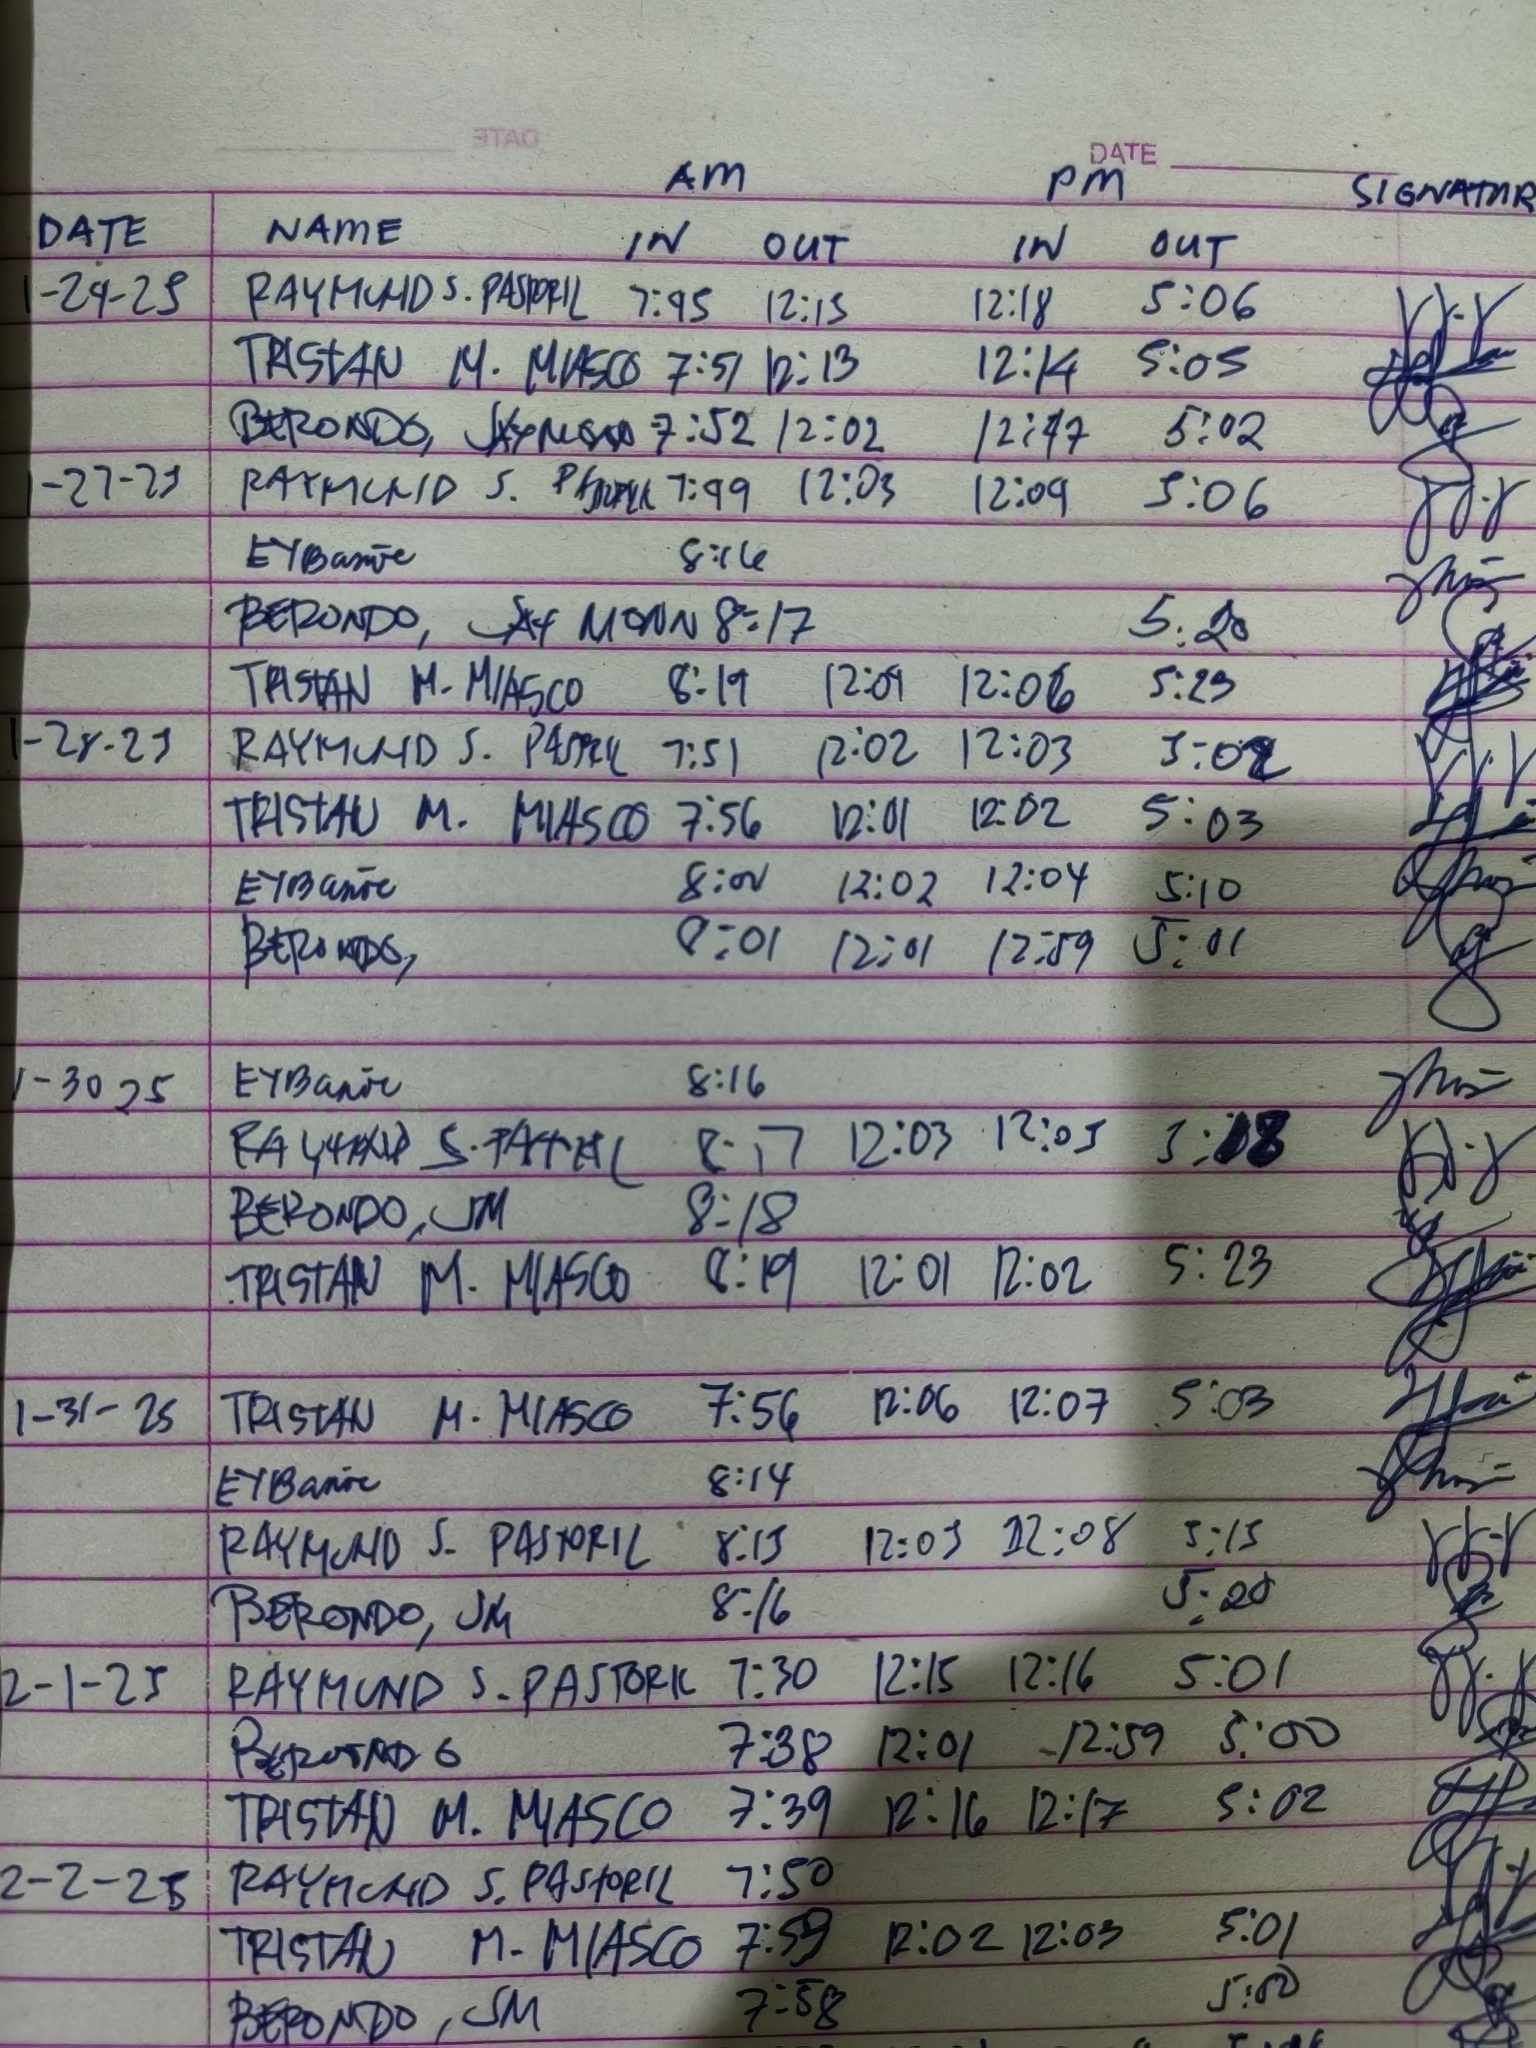 DATE
DATE
AM PM SIGNATUR
DATE NAME IN OUT IN OUT
1-24-25 RAYMUND S. PASTORIL 7:45 12:15 12:18 5:06
TRISTAN M. MIASCO 7:51 12:13 12:14 5:05
BERONDO, JAYMONN 7:52 12:02 12:47 5:02
1-27-25 RAYMUND S. PASTORIL 7:49 12:03 12:04 5:06
EYBanic 8:16
BERONDO, JAY MONN 8:17 5:20
TRISTAN M. MIASCO 8:19 12:04 12:06 5:23
1-28-25 RAYMUND S. PASTORIL 7:51 12:02 12:03 5:02
TRISTAN M. MIASCO 7:56 12:01 12:02 5:03
EYBanic 8:00 12:02 12:04 5:10
BERONDO, 8:01 12:01 12:59 5:01
1-30 25 EYBanic 8:16
RAYMUND S. PASTORIL 8:17 12:03 12:05 5:18
BERONDO, JM 8:18
TRISTAN M. MIASCO 8:19 12:01 12:02 5:23
1-31-25 TRISTAN M. MIASCO 7:56 12:06 12:07 5:03
EYBanic 8:14
RAYMUND S. PASTORIL 8:15 12:05 12:08 5:15
BERONDO, JM 8:16 5:20
2-1-25 RAYMUND S. PASTORIL 7:30 12:15 12:16 5:01
BERONDO 7:38 12:01 12:59 5:00
TRISTAN M. MIASCO 7:39 12:16 12:17 5:02
2-2-25 RAYMUND S. PASTORIL 7:50
TRISTAN M. MIASCO 7:59 12:02 12:03 5:01
BERONDO, JM 7:58 5:00